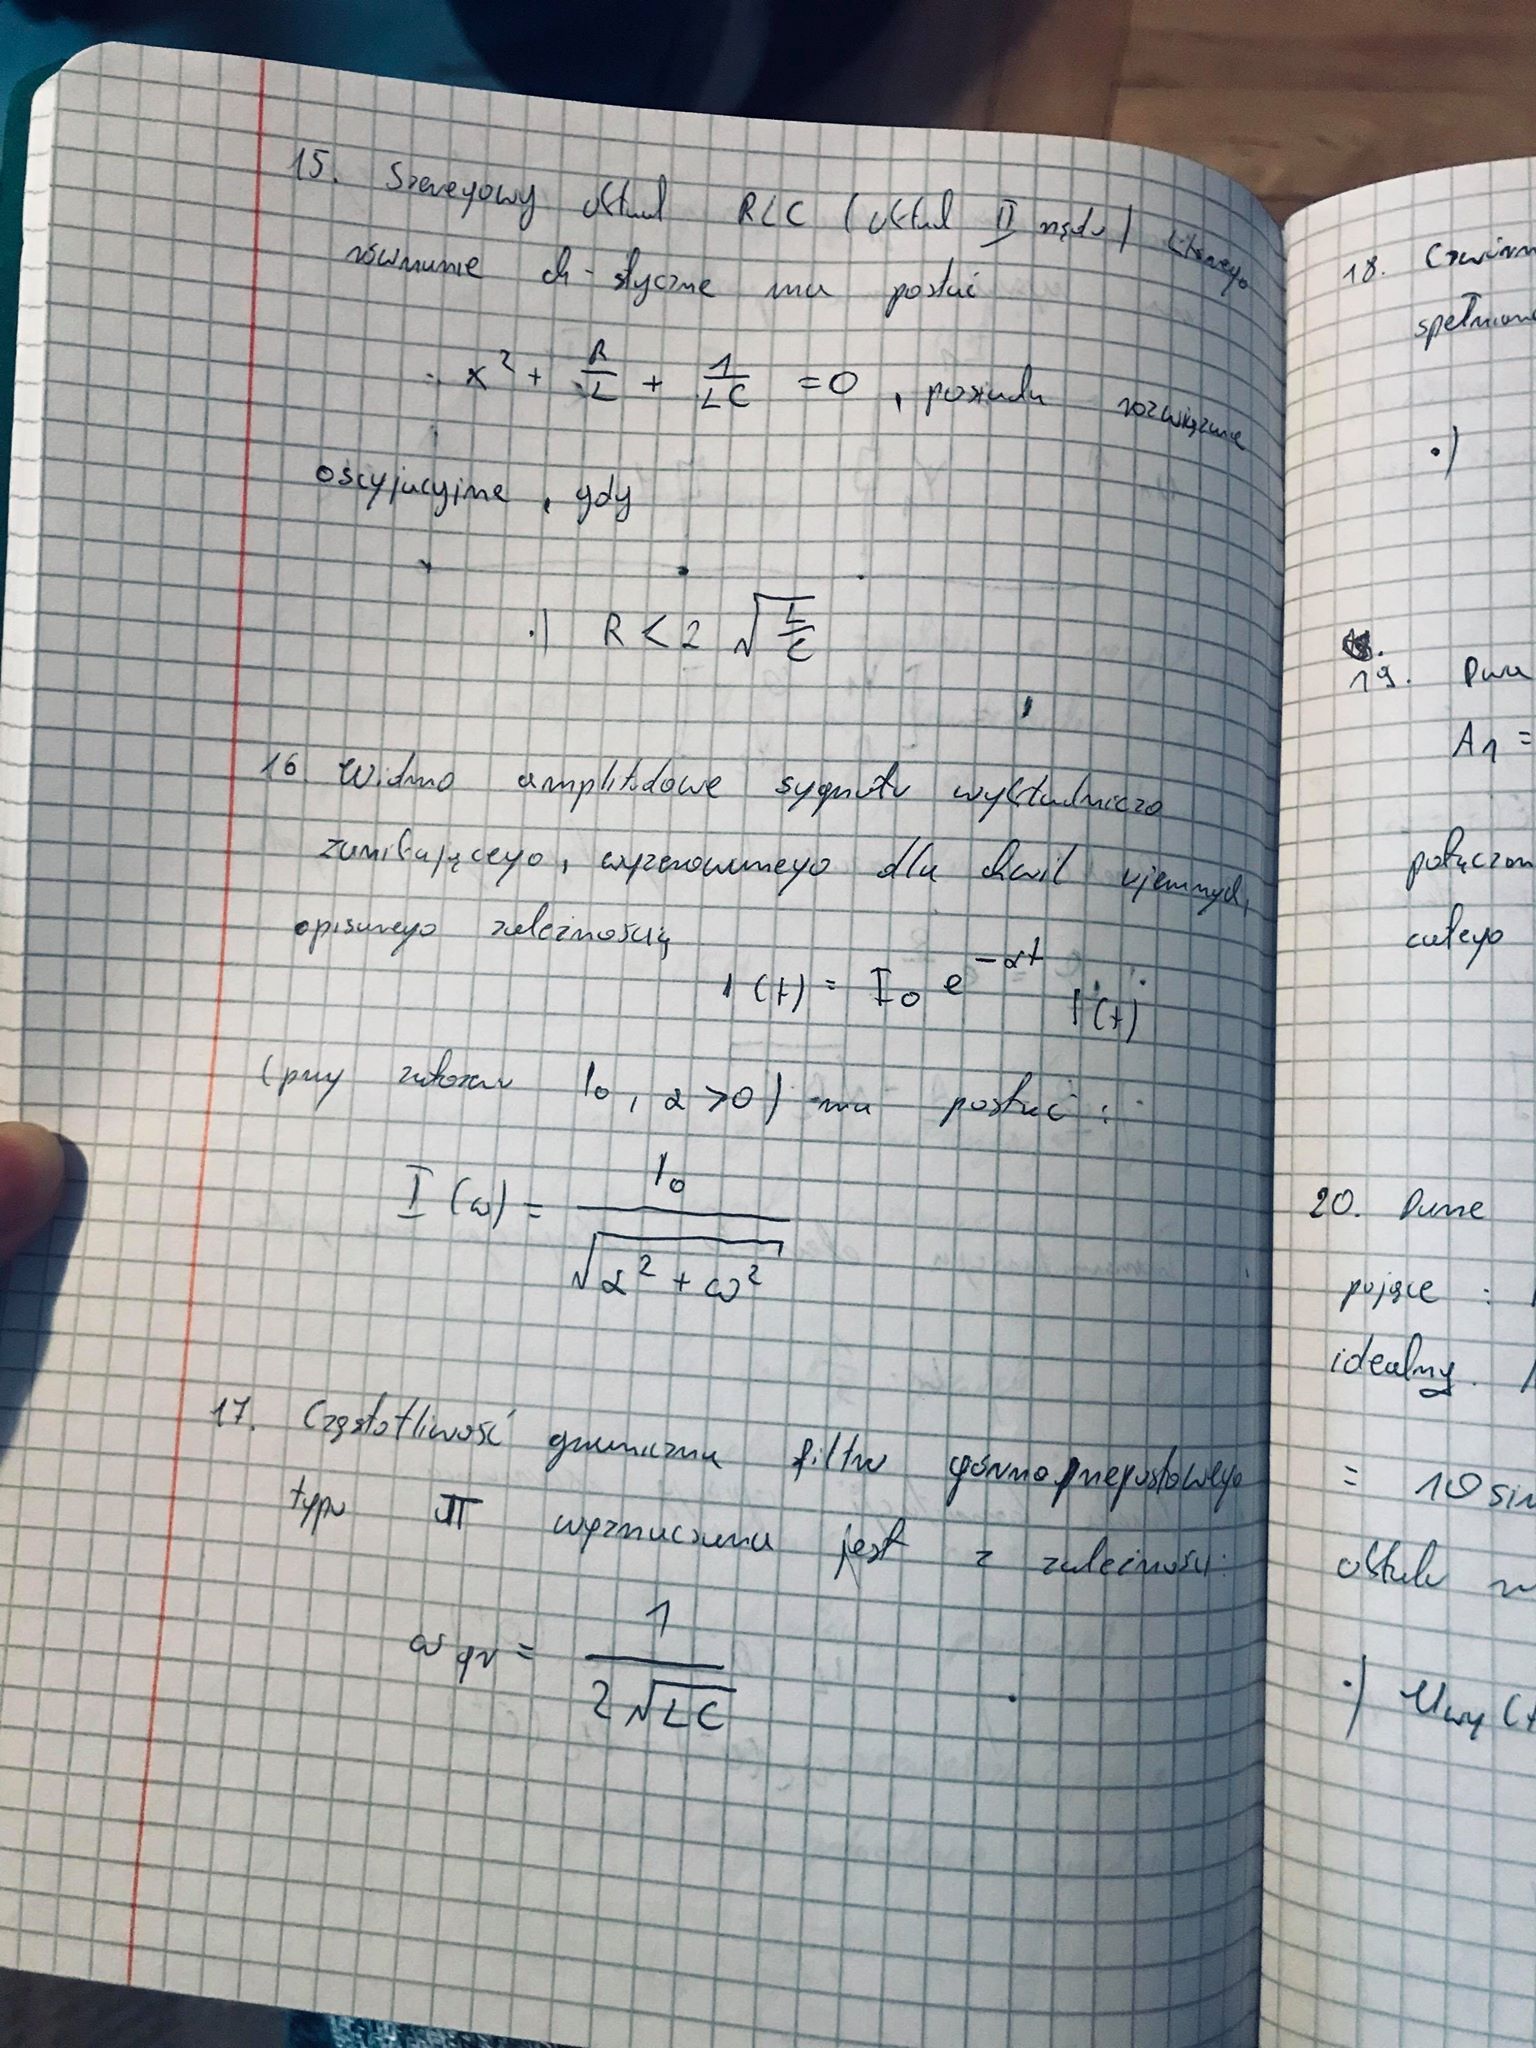 15. Szeregowy układ RLC (układ II rzędu) którego
równanie ch-styczne ma postać
x² + R/L + 1/LC = 0, posiada rozwiązanie
oscyjacyjne, gdy
·) R < 2 √(L/C)
16 Widmo amplitudowe sygnału wykładniczo
zanikającego, wyzerowanego dla chwil ujemnych,
opisanego zależnością
i(t) = I₀ e^(-αt) 1(t)
(przy założeniu I₀, α > 0) ma postać:
I(ω) = I₀ / √(α² + ω²)
17. Częstotliwość graniczna filtru górnoprzepustowego
typu π wyznaczana jest z zależności:
ω gr = 1 / 2√LC
18.
spełnione
·)
19. Dwa
A₁ =
połączon
całego
20. Dane
pojące :
idealny.
= 10 sin
układu
·) U wy